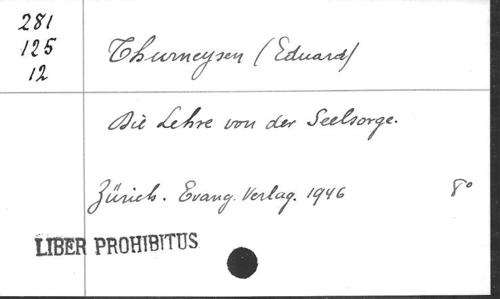 281
125
12
Thurneysen (Eduard)
Die Lehre von der Seelsorge.
Zürich. Evang. Verlag. 1946 8°
LIBER PROHIBITUS